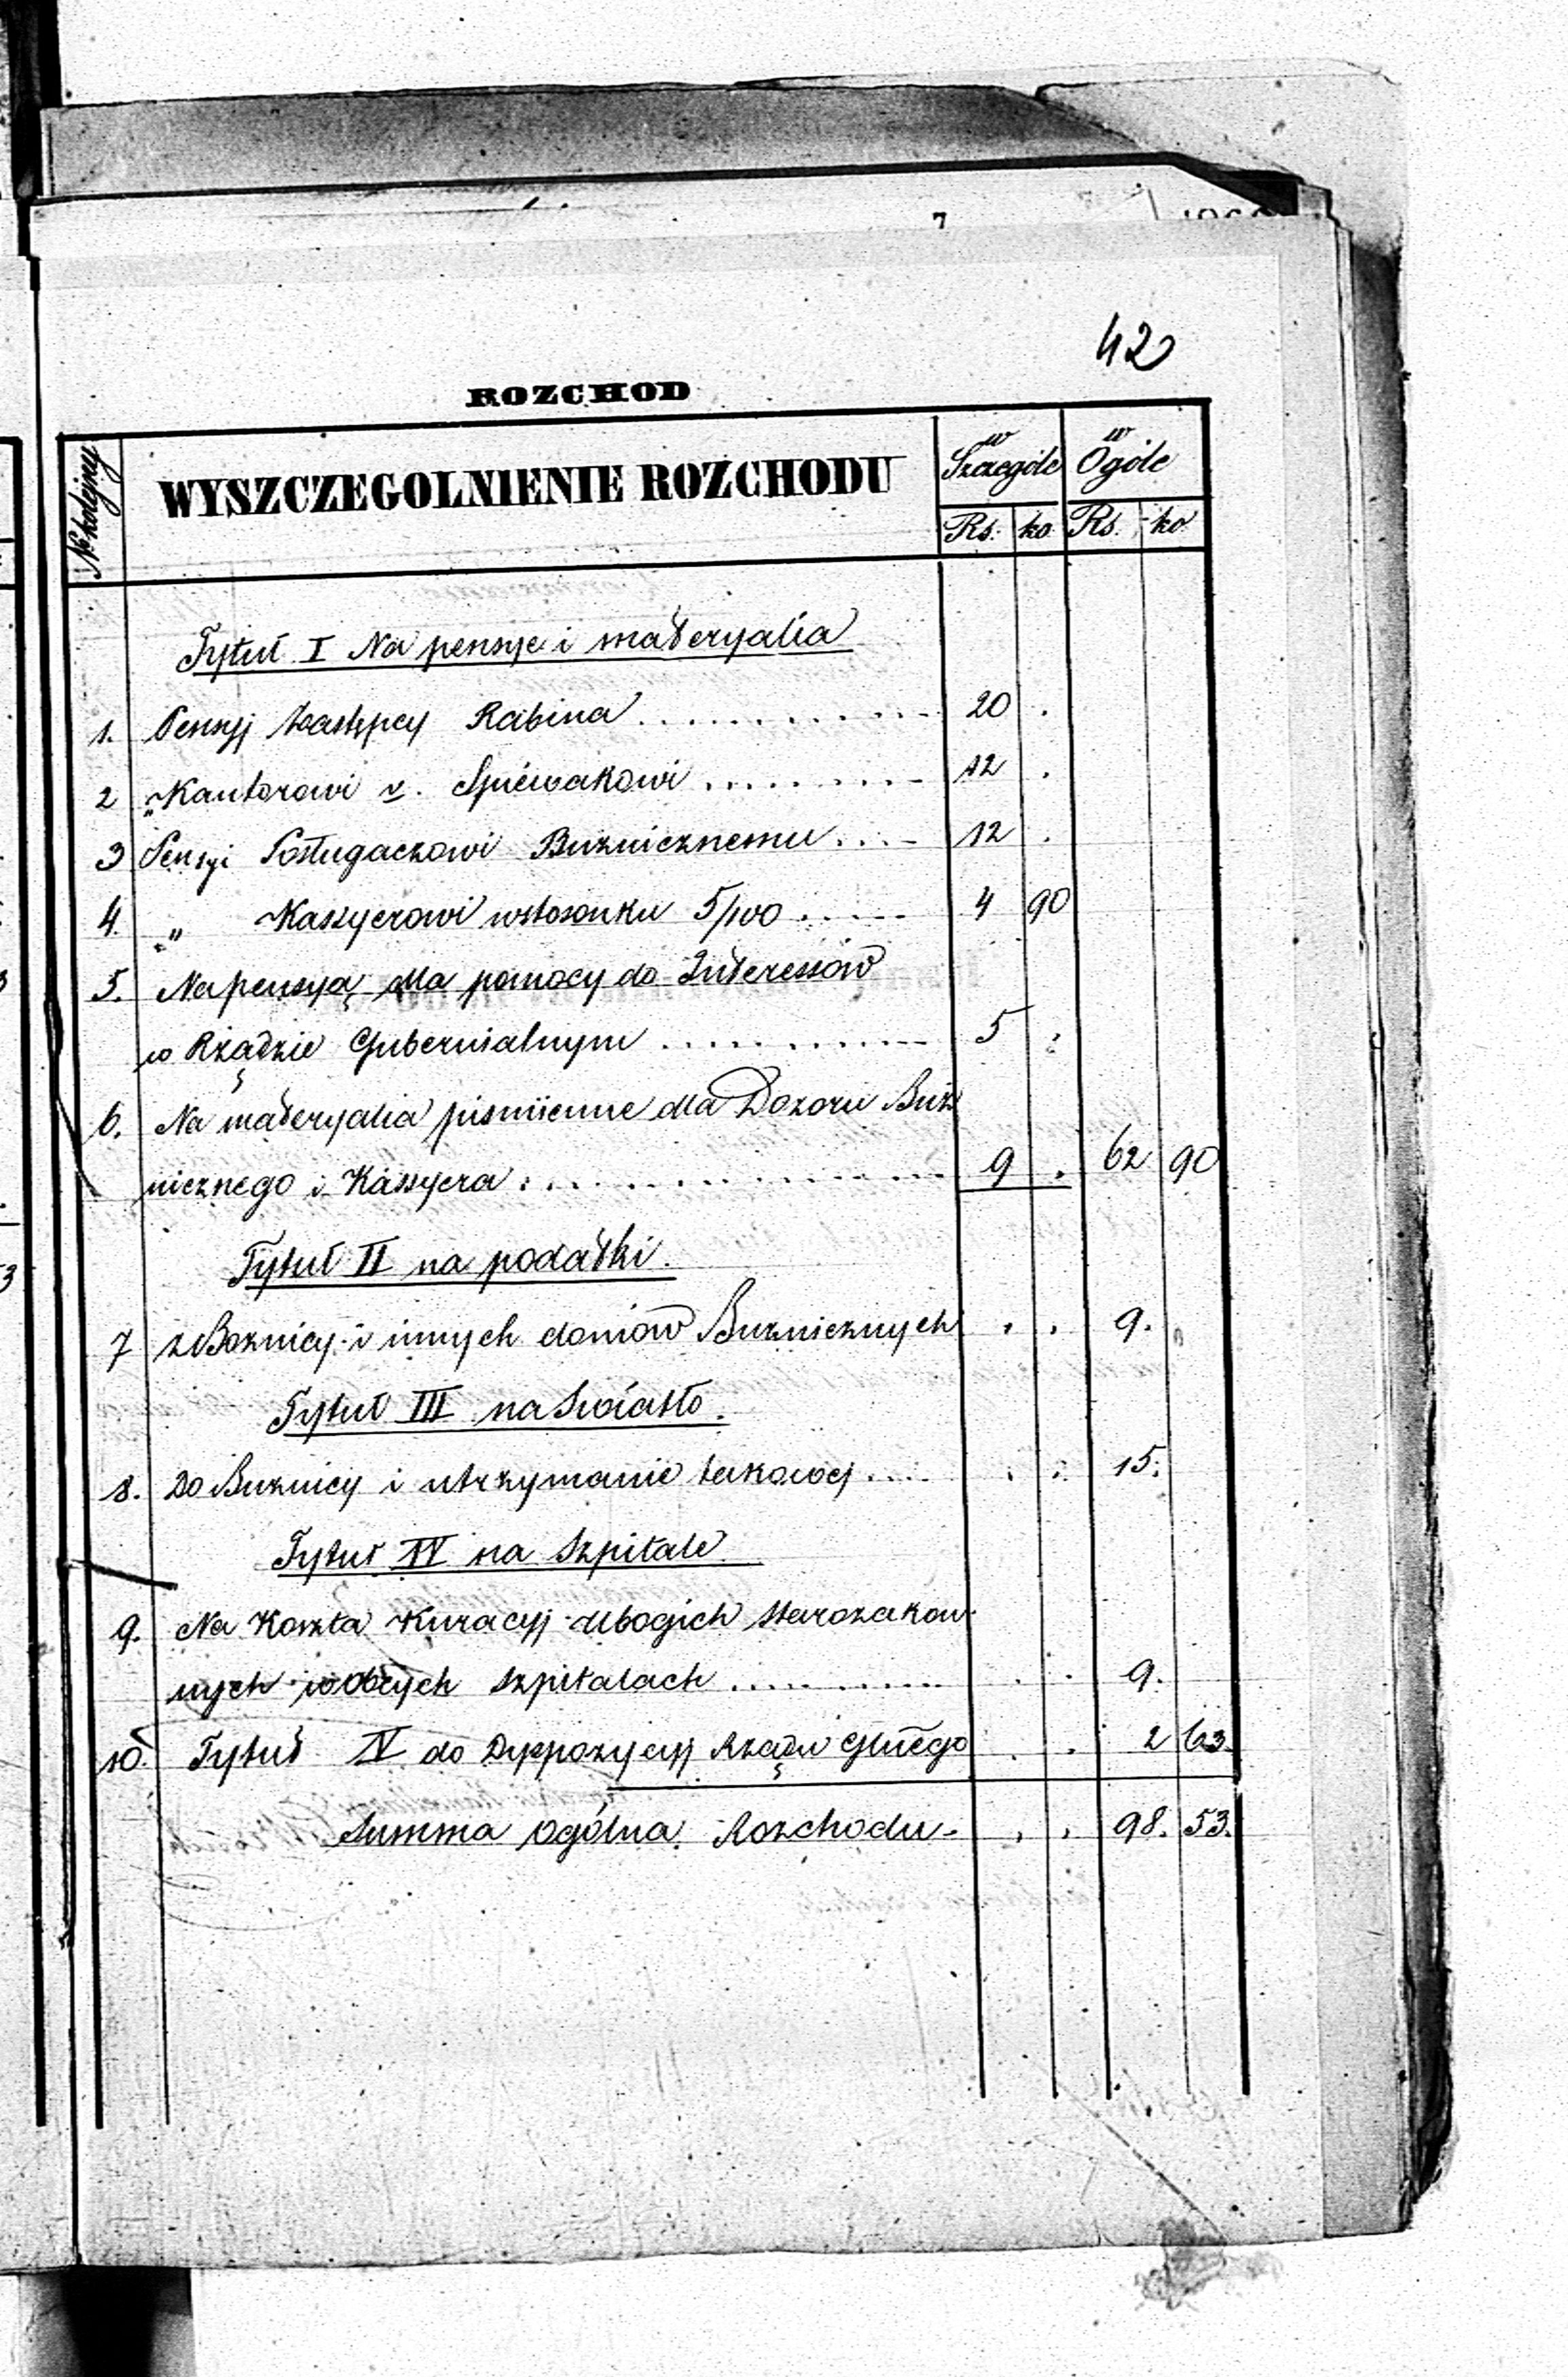 7
42
ROZCHOD
№ kolejny WYSZCZEGOLNIENIE ROZCHODU w Szczególe w Ogóle
Rs. ko Rs. ko
Tytuł I Na pensye i materyalia
1. Pensyj Zastępcy Rabina . . . . . . . . . . 20 .
2 „ Kantorowi v. Spiewakowi . . . . . . . . 12 .
3 Pensyi Posługaczowi Buznicznemu . . . . 12 .
4. „ Kassyerowi wstosonku 5/100 . . . . . 4 90
5. Na pensyą dla pomocy do Interessów
w Rządzie Gubernialnym . . . . . . . . . . 5 .
6. Na materyalia piśmienne dla Dozoru Buz
nicznego i Kassyera . . . . . . . . . . . . . 9 . 62 90
Tytuł II na podatki.
7 z Boznicy i innych domów Buznicznych . . 9.
Tytuł III na Swiatło.
8. Do Buznicy i utrzymanie takowej . . . . . . 15.
Tytuł IV na Szpitale
9. Na Koszta Kuracyj Ubogich Starozakon
nych w Obcych Szpitalach . . . . . . . . . . . 9.
10. Tytuł V do Dyspozycyj Rządu Glnego . . 2 63.
Summa ogólna Rozchodu - . . 98. 53.